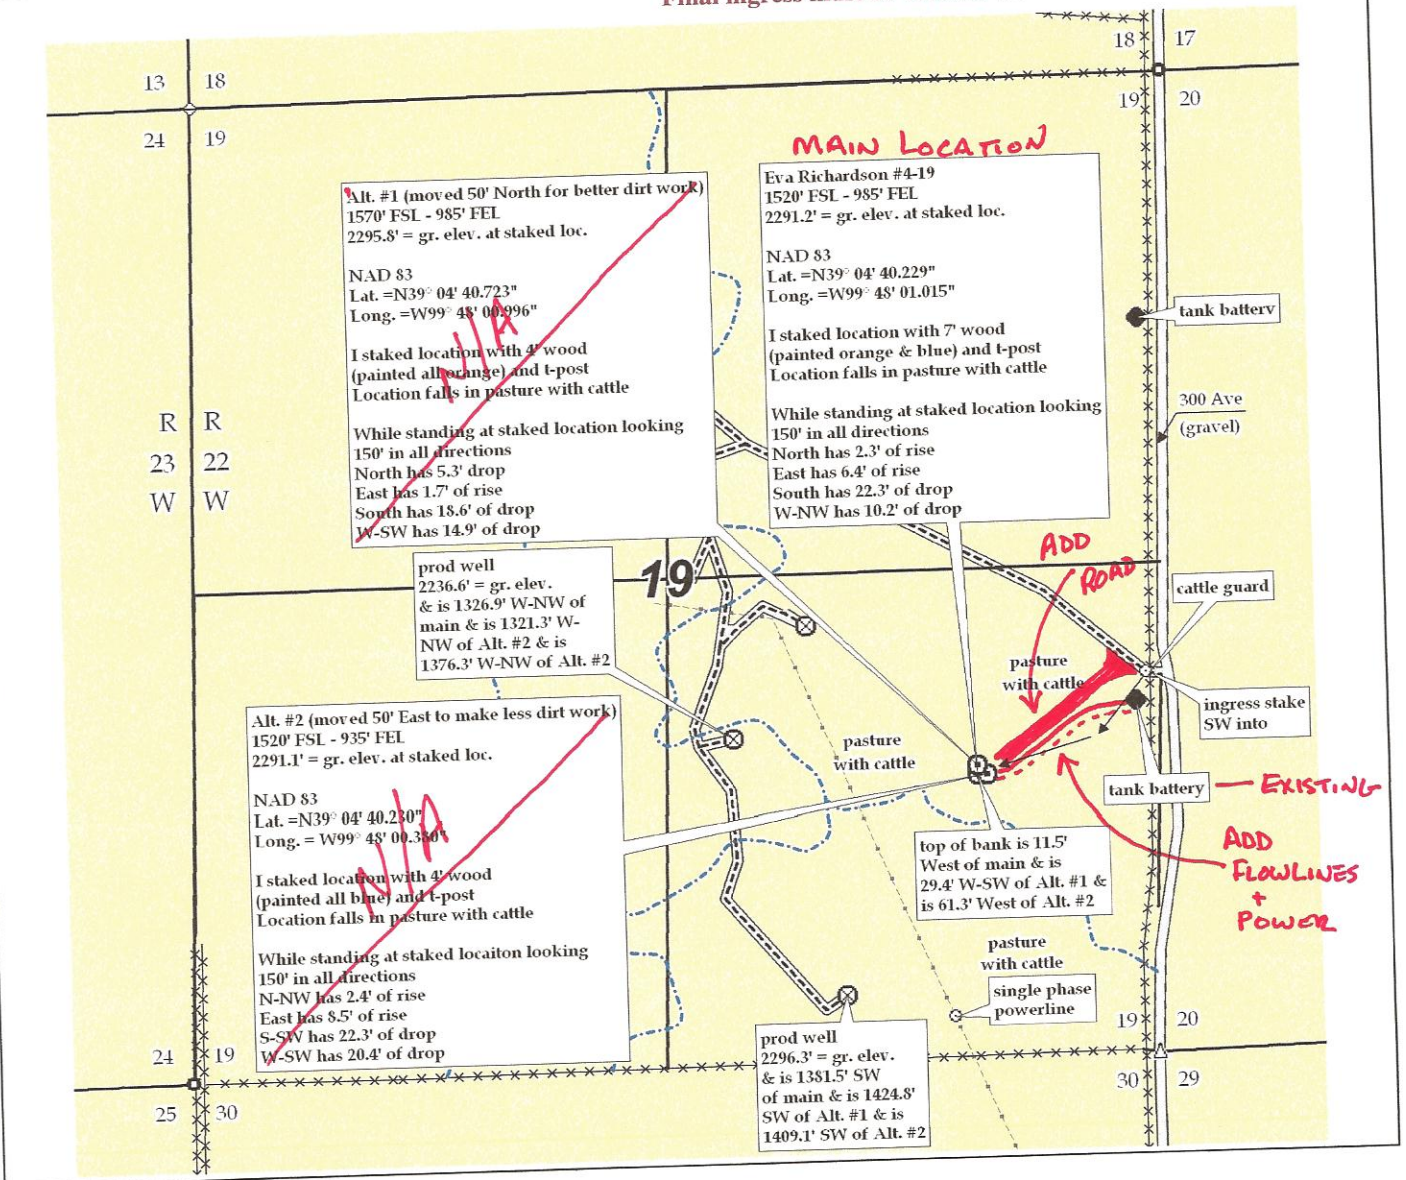 13 18
18 17
24 19
19 20
MAIN LOCATION
Alt. #1 (moved 50' North for better dirt work)
1570' FSL - 985' FEL
2295.8' = gr. elev. at staked loc.
NAD 83
Lat. =N39° 04' 40.723"
Long. =W99° 48' 00.996"
I staked location with 4' wood
(painted all orange) and t-post
Location falls in pasture with cattle
While standing at staked location looking
150' in all directions
North has 5.3' drop
East has 1.7' of rise
South has 18.6' of drop
W-SW has 14.9' of drop
N/A
Eva Richardson #4-19
1520' FSL - 985' FEL
2291.2' = gr. elev. at staked loc.
NAD 83
Lat. =N39° 04' 40.229"
Long. =W99° 48' 01.015"
I staked location with 7' wood
(painted orange & blue) and t-post
Location falls in pasture with cattle
While standing at staked location looking
150' in all directions
North has 2.3' of rise
East has 6.4' of rise
South has 22.3' of drop
W-NW has 10.2' of drop
tank battery
300 Ave
(gravel)
R R
23 22
W W
ADD
ROAD
prod well
2236.6' = gr. elev.
& is 1326.9' W-NW of
main & is 1321.3' W-
NW of Alt. #2 & is
1376.3' W-NW of Alt. #2
19
cattle guard
pasture
with cattle
ingress stake
SW into
pasture
with cattle
tank battery
EXISTING
Alt. #2 (moved 50' East to make less dirt work)
1520' FSL - 935' FEL
2291.1' = gr. elev. at staked loc.
NAD 83
Lat. =N39° 04' 40.230"
Long. = W99° 48' 00.380"
I staked location with 4' wood
(painted all blue) and t-post
Location falls in pasture with cattle
While standing at staked locaiton looking
150' in all directions
N-NW has 2.4' of rise
East has 8.5' of rise
S-SW has 22.3' of drop
W-SW has 20.4' of drop
N/A
top of bank is 11.5'
West of main & is
29.4' W-SW of Alt. #1 &
is 61.3' West of Alt. #2
ADD
FLOWLINES
+
POWER
pasture
with cattle
single phase
powerline
prod well
2296.3' = gr. elev.
& is 1381.5' SW
of main & is 1424.8'
SW of Alt. #1 & is
1409.1' SW of Alt. #2
24 19
19 20
25 30
30 29